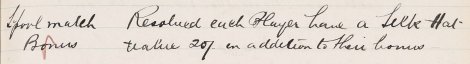 Spool match Resolved each Player have a Silk Hat
Bonus value 20/ in addition to their bonus